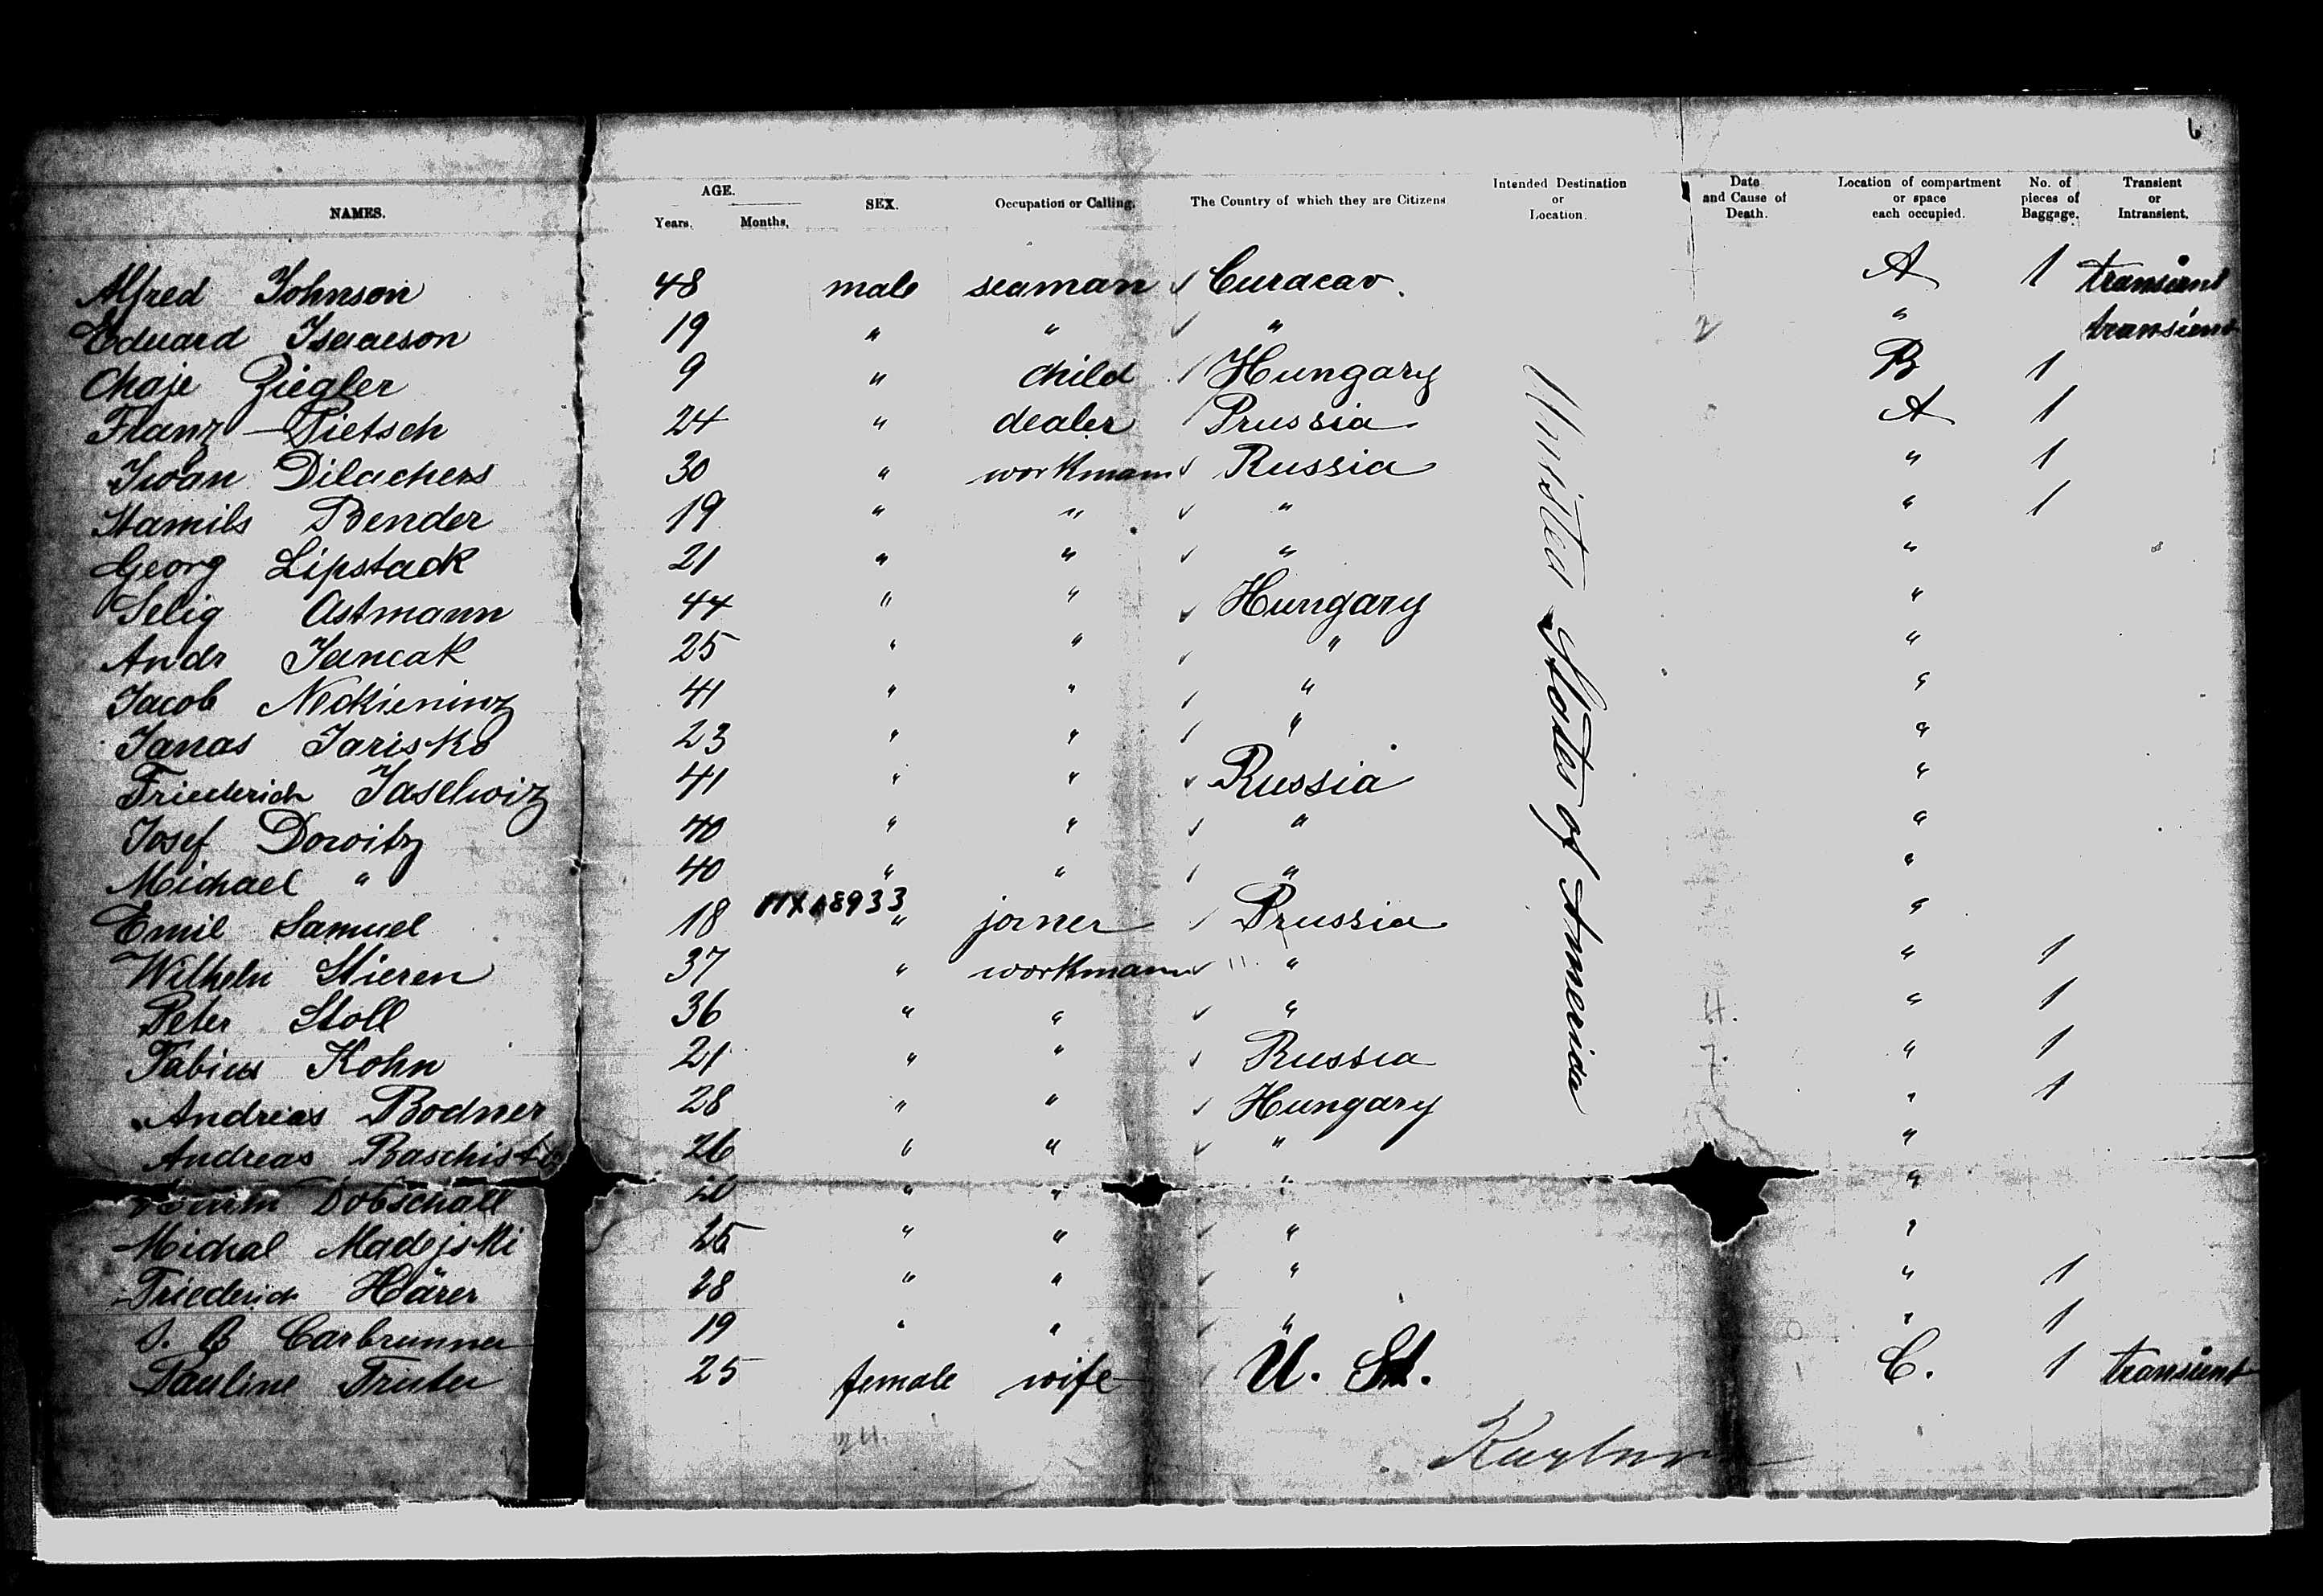 6
NAMES. AGE. Years. Months. SEX. Occupation or Calling. The Country of which they are Citizens Intended Destination or Location. Date and Cause of Death. Location of compartment or space each occupied. No. of pieces of Baggage. Transient or Intransient.
Alfred Johnson 48 male seaman ✓ Curacao. A 1 transient
Eduard Isaacson 19 " " ✓ " 2 " transient
Chaje Ziegler 9 " child / Hungary B 1
Franz Pietsch 24 " dealer / Prussia A 1
Iwan Dilachers 30 " workmann ✓ Russia " 1
Stamils Bender 19 " " ✓ " " 1
Georg Lipstack 21 " " ✓ " "
Selig Astmann 44 " " ✓ Hungary "
Andr Jancak 25 " " ✓ " "
Jacob 41 " " ✓ " "
Janas Jarisko 23 " " ✓ " "
Friederich Jaselwiz 41 " " ✓ Russia "
Josef Dowitz 40 " " ✓ " "
Michael " 40 " " ✓ " "
Emil Samuel 18 8933 " joiner ✓ Prussia "
Wilhelm Stieren 37 " workmann ✓ " " 1
Peter Stoll 36 " " ✓ " 4. " 1
Fabius Kohn 21 " " ✓ Russia 7. " 1
Andreas Bodner 28 " " ✓ Hungary " 1
Andreas 26 " " ✓ " "
Dobschall " " " "
Michal Madejski 25 " " ✓ " "
Friederich Härer 28 " " ✓ " " 1
J. B Carbrunner 19 " " ✓ " " 1
Pauline 25 female wife / U. St. C. 1 transient
United States of America
24.